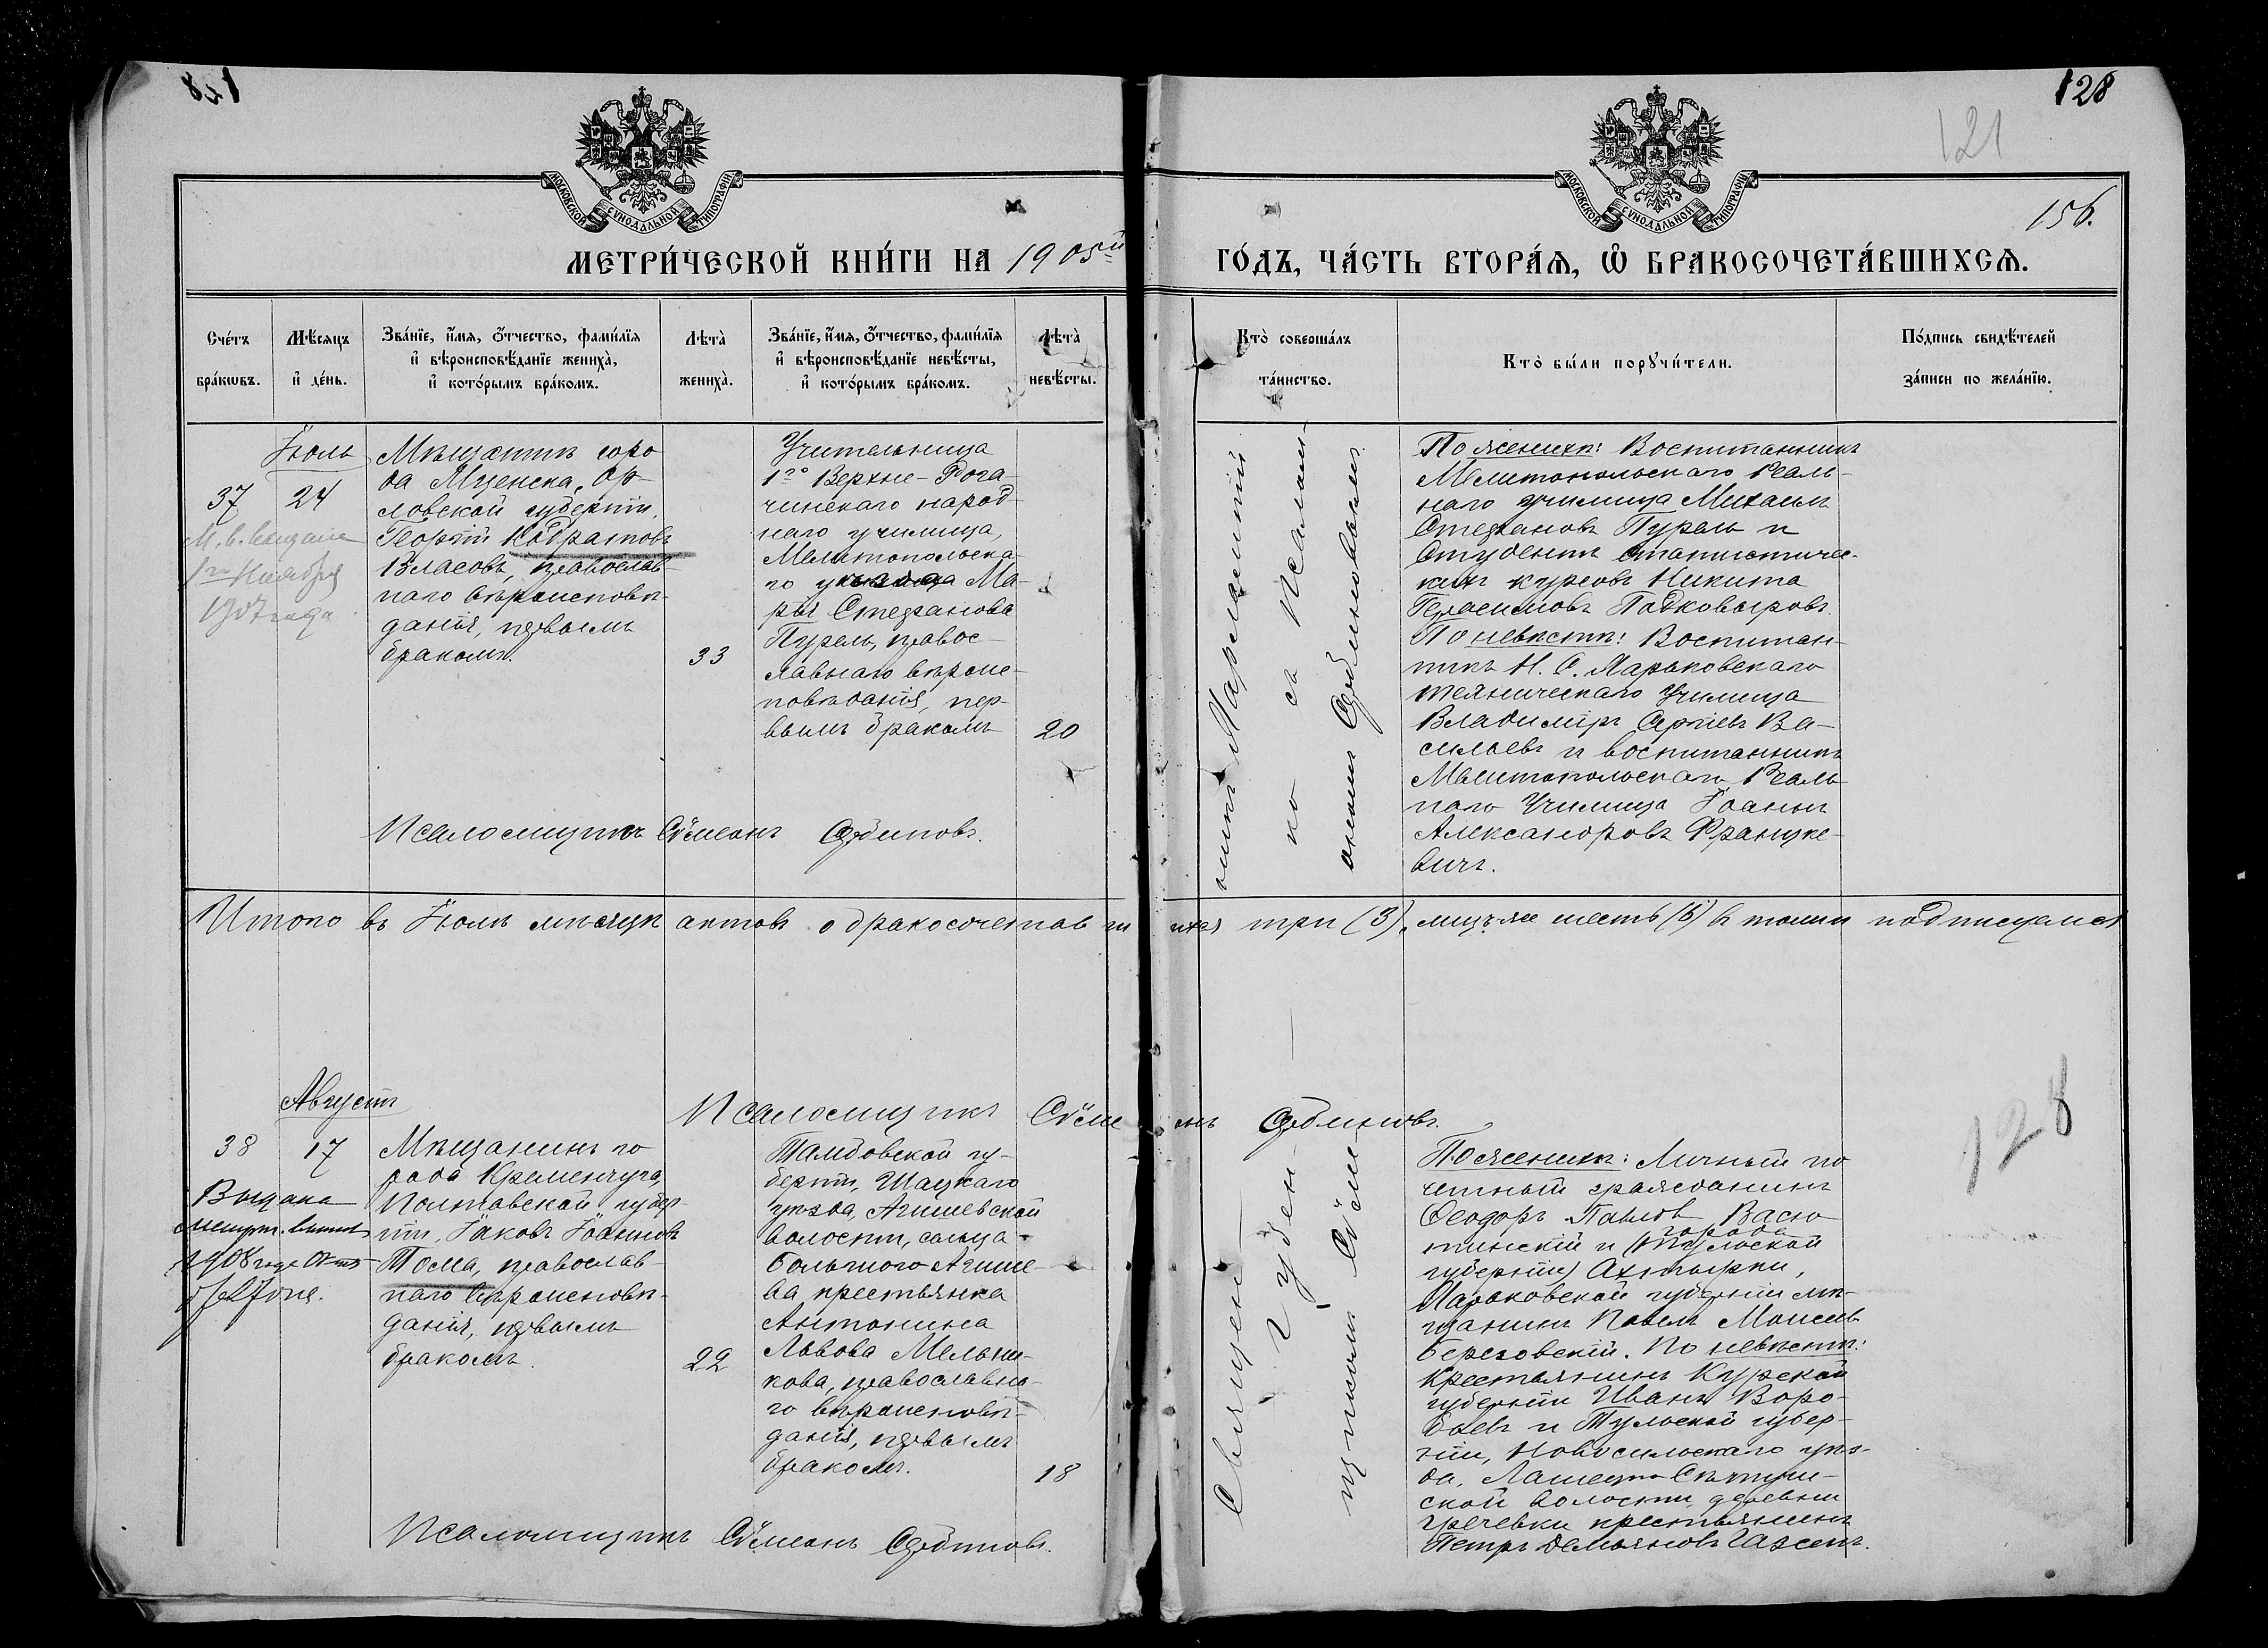 128
121
156.
МОСКОВСКОЙ СѴНОДАЛЬНОЙ ТИПОГРАФІИ
МОСКОВСКОЙ СѴНОДАЛЬНОЙ ТИПОГРАФІИ
МЕТРИ́ЧЕСКОЙ КНИ́ГИ НА 1905й
ГО́ДЪ, ЧА́СТЬ ВТОРА́Ѧ, Ѡ҆ БРАКОСОЧЕТА́ВШИХСѦ.
Сче́тъ бра́кѡвъ.
Мѣ́сяцъ и҆ де́нь.
Зва́нїе, и҆́мѧ, ѻ҆́тчество, фами́лїѧ
и҆ вѣроисповѣ́данїе жениха̀,
и҆ кото́рымъ бра́комъ.
Лѣта̀ жениха̀.
Зва́нїе, и҆́мѧ, ѻ҆́тчество, фами́лїѧ
и҆ вѣроисповѣ́данїе невѣ́сты,
и҆ кото́рымъ бра́комъ.
Лѣта̀ невѣ́сты.
Кто̀ соверша́лъ
та́инство.
Кто̀ бы́ли порꙋчи́тели.
По́дпись свидѣ́телей
за́писи по жела́нїю.
Іюль
37 24
М. в. выдана
1го Ноября
1907 года
Мѣщанинъ горо
да Мценска, Ор-
ловской губерніи,
Георгій Кодратовъ
Власовъ, православ-
наго вѣроисповѣ-
данія, первымъ
бракомъ.
33
Учительница
1го Верхне-Рога-
чинскаго народ-
наго училища,
Мелитопольска-
го уѣзда Ма-
рія Стефанова
Пурель, правос-
лавнаго вѣроис-
повѣданія, пер-
вымъ бракомъ
20
По женихѣ: Воспитанникъ
Мелитопольскаго Реаль-
наго училища Михаилъ
Стефановъ Пурель и
Студентъ статистичес-
кихъ курсовъ Никита
Герасимовъ Подковыровъ.
По невѣстѣ: Воспитан-
никъ Н. С. Харьковскаго
техническаго Училища
Владиміръ Сергіевъ Ва-
сильевъ и воспитанникъ
Мелитопольскаго Реаль
наго Училища Іоаннъ
Александровъ Францке-
вичъ.
Псаломщикъ Сѵмеонъ
Итого въ Іюлѣ мѣсяцѣ актовъ о бракосочетавшихся три (3), лицъ же шесть (6) въ томъ подписуемся
Псаломщикъ Сѵмеонъ
Августъ
38 17
Выдана
1908 года
Мѣщанинъ го
рода Кременчуга,
Полтавской губер
ніи, Іаковъ Іоанновъ
Тома, православ-
наго вѣроисповѣ-
данія, первымъ
бракомъ.
22
Тамбовской гу-
берніи, Шацкаго
уѣзда, Агишевской
волости, сельца
большого Агише-
ва крестьянка
Антонина
Львова Мельни-
кова, православна-
го вѣроисповѣ-
данія, первымъ
бракомъ.
18
Священ-
По женихѣ: Личный по
четный гражданинъ
Ѳеодоръ Павловъ Васю
тинскій и города
губерніи) Ахтырки,
Харьковской губерніи мѣ-
щанинъ Павелъ Моисеевъ
Березовскій. По невѣстѣ:
Крестьянинъ Курской
губерніи Иванъ Воро-
бьевъ и Тульской губер-
ніи, Новосильскаго уѣз-
да,
ской волости деревни
Гречевки крестьянинъ
Петръ Демьяновъ
128
Псаломщикъ Сѵмеонъ